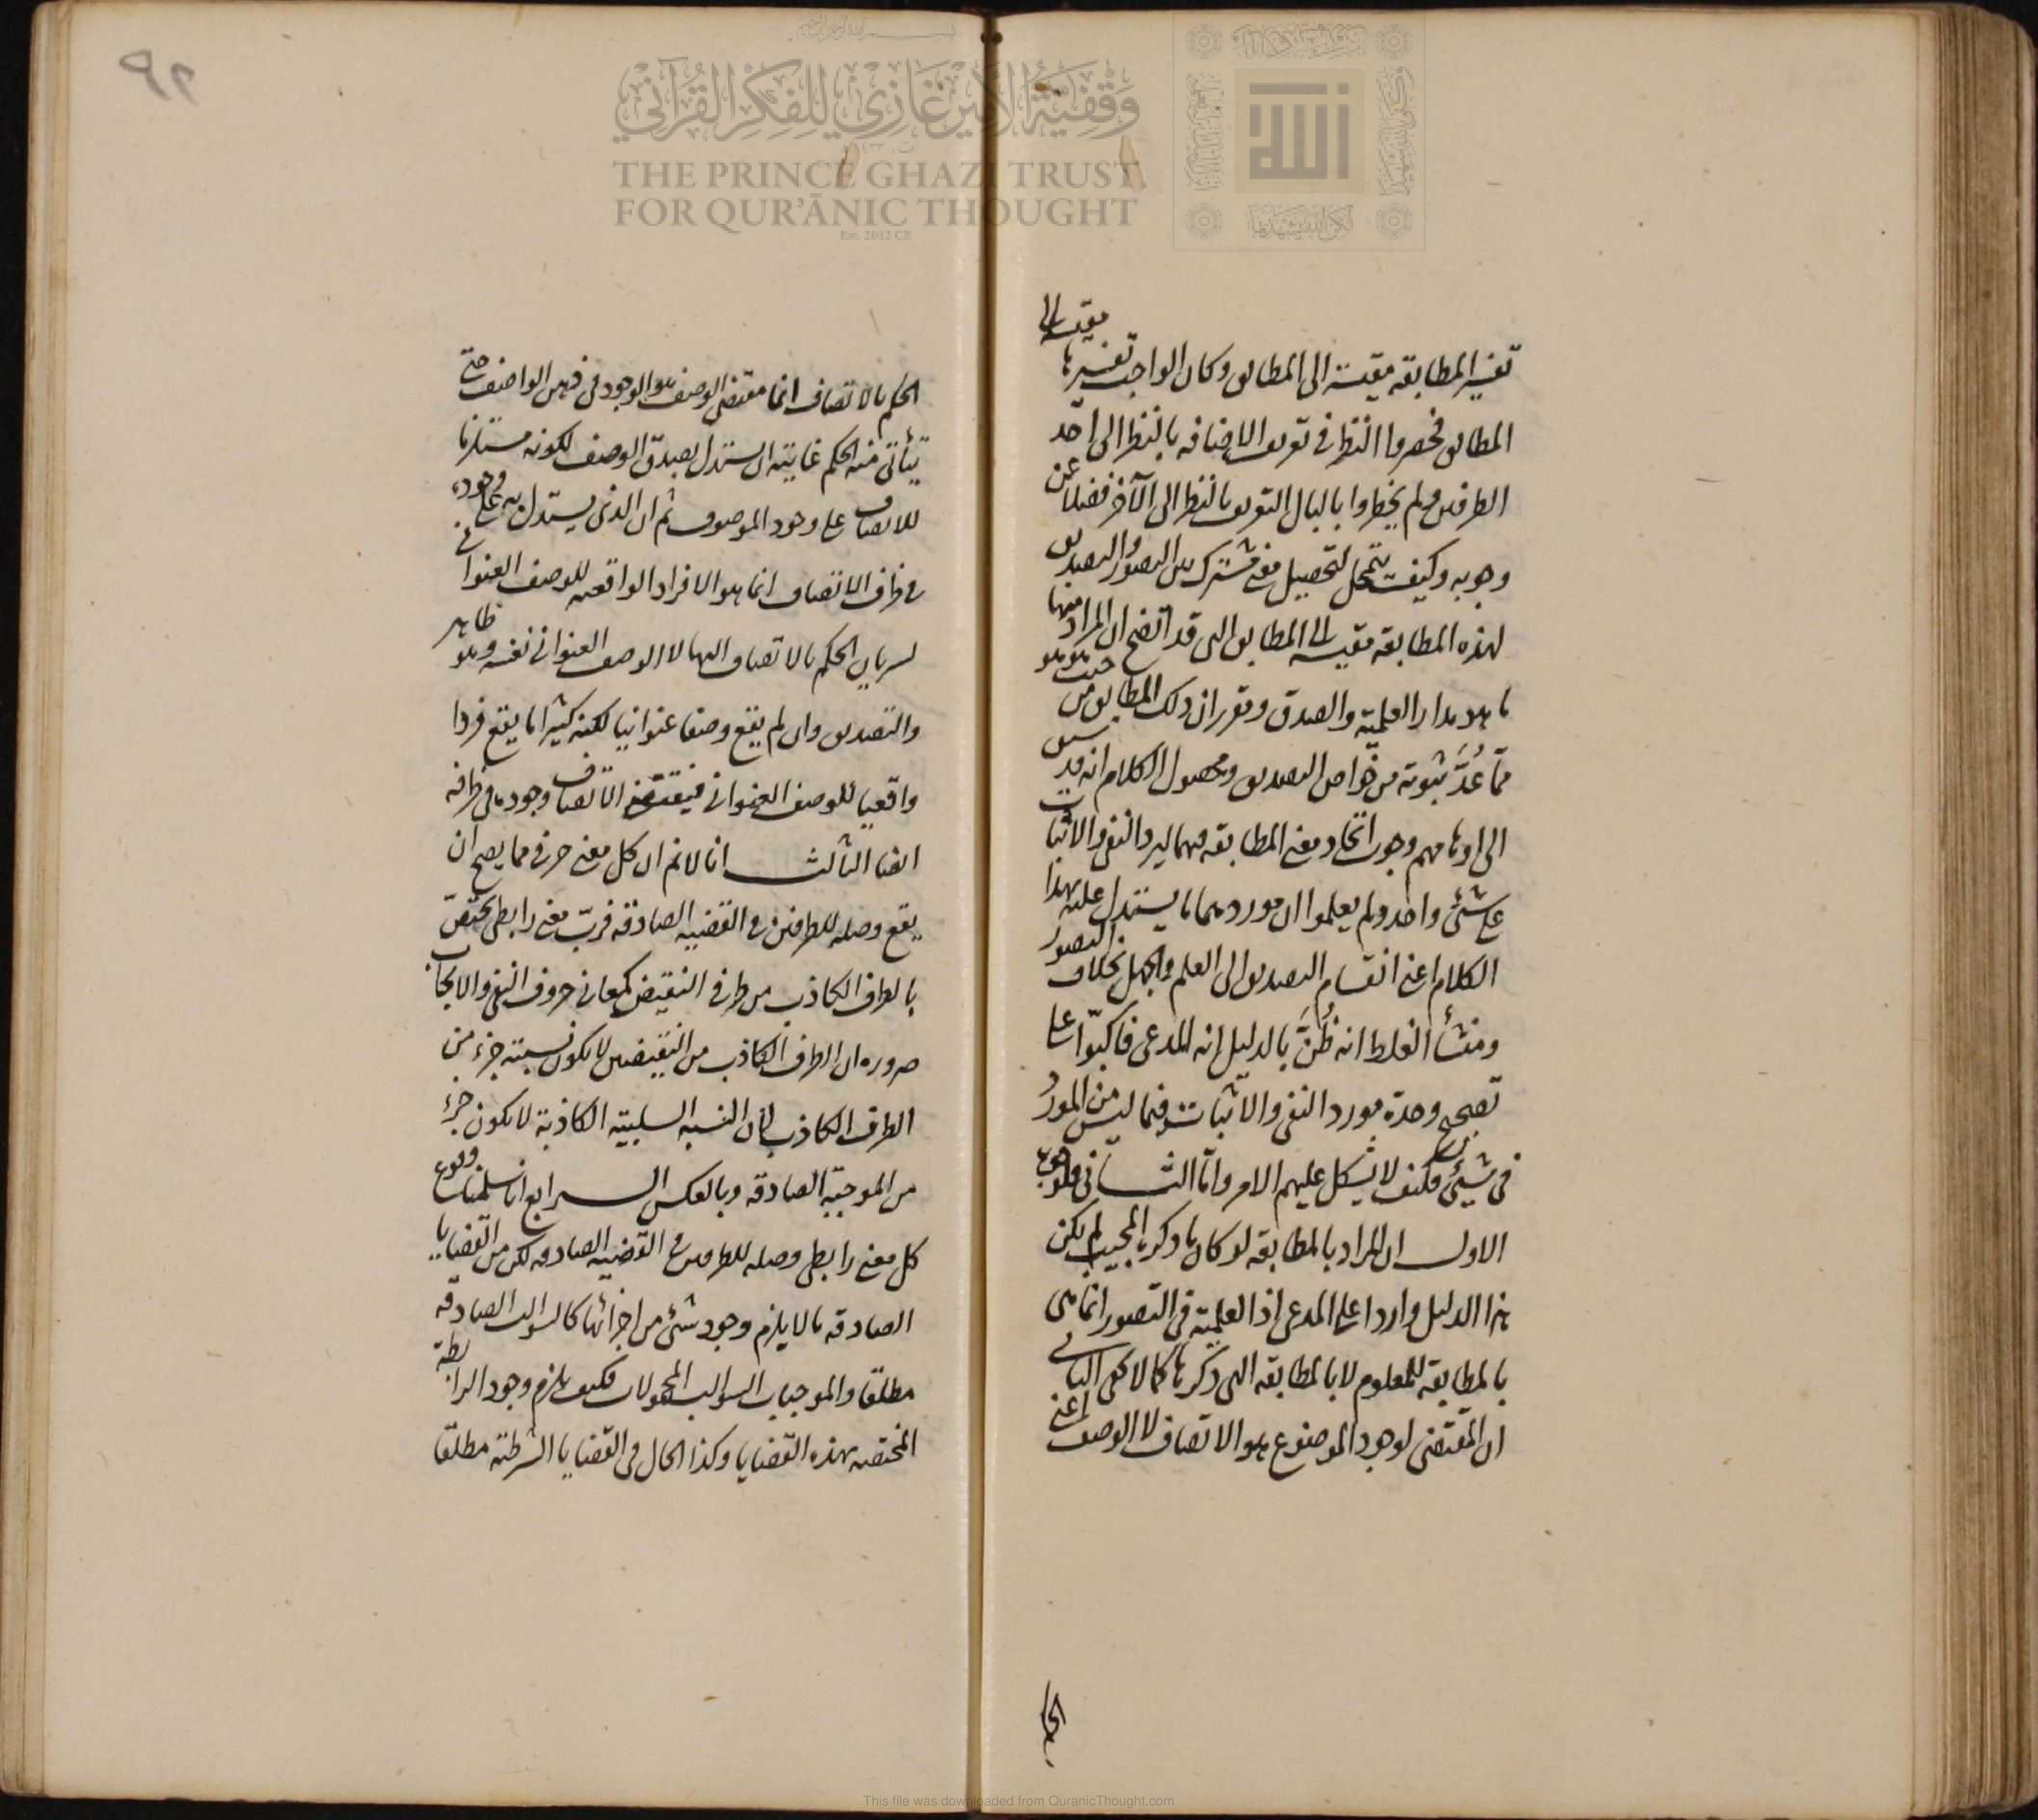 وقفية الأمير غازي للفكر القرآني
THE PRINCE GHAZI TRUST
FOR QUR'ĀNIC THOUGHT
Est. 2012 CE
٩٢
تفسير المطابقة مقيسة الى المطابق وكان الواجب تفسيرها مقيسة الى
المطابق فحصروا النظر في تعريف الاضافه بالنظر الى احد
الطرفين ولم يخطروا بالبال التعريف بالنظر الى الآخر فضلا عن
وجوبه وكيف يتمحل لتحصيل معنى مشترك بين التصور والتصديق
لهذه المطابقة مقيسه الى المطابق التى قد اتضح ان المراد منها
ما هو مدار العلمية والصدق وتقرر ان ذلك المطابق من حيث هو هو
مما عُدَّ ثبوته من خواص التصديق ومحصول الكلام انه قد سبق
الى اوهامهم وجوب اتحاد معنى المطابقه فيهما ليرد النفى والاثبات
على شئ واحد ولم يعلموا ان موردهما ما يستدل عليه بهذا
الكلام اعنى انقسام التصديق الى العلم والجهل بخلاف التصور
ومنشأ الغلط انه ظُنَّ بالدليل انه المدعى فاكبّوا على
تصحيح وحدة مورد النفى والاثبات فيما ليس من المورد
فى شئ فكيف لا يشكل عليهم الامر واما الثانى فلوجوه
الاول ان المراد بالمطابقه لو كان ما ذكره المجيب لم يكن
هذا الدليل واردا على المدعى اذ العلمية فى التصور انما هى
بالمطابقه للمعلوم لا بالمطابقه التى ذكرها كما لا يخفى الثانى
ان المقتضى لوجود الموضوع هو الاتصاف لا الوصف اعنى
الحكم بالاتصاف انما مقتضى الوصف هو الوجود فى ذهن الواصف حتى
يتأتى منه الحكم غايته ان يستدل بصدق الوصف لكونه مستلزما
للاتصاف على وجود الموصوف ثم ان الذى يستدل به على وجوده
فى ظرف الاتصاف انما هو الافراد الواقعيه للوصف العنوانى
لسريان الحكم بالاتصاف اليها لا الوصف العنوانى نفسه وهو ظاهر
والتصديق وان لم يقع وصفا عنوانيا لكنه كثيرا ما يقع فردا
واقعيا للوصف العنوانى فيقتضى الاتصاف وجوده فى ظرفه
ايضا الثالث انا لا نم ان كل معنى حرفى مما يصح ان
يقع وصله للطرفين فى القضيه الصادقه فربّ معنى رابطى يختصّ
بالطرف الكاذب من طرفى النقيض كمعانى حروف النفى والايجاب
ضروره ان الطرف الكاذب من النقيضين لا يكون نسبته جزء من
الطرف الكاذب لأن النسبه السلبية الكاذبة لا يكون جزء
من الموجبة الصادقه وبالعكس الرابع انا سلمنا وقوع
كل معنى رابطى وصله للطرفين فى القضيه الصادقه لكن من القضايا
الصادقه ما لا يلزم وجود شئ من اجزائها كالسوالب الصادقه
مطلقا والموجبات السوالب المحمولات فكيف يلزم وجود الرابطة
المختصه بهذه القضايا وكذا الحال فى القضايا الشرطية مطلقا
This file was downloaded from QuranicThought.com